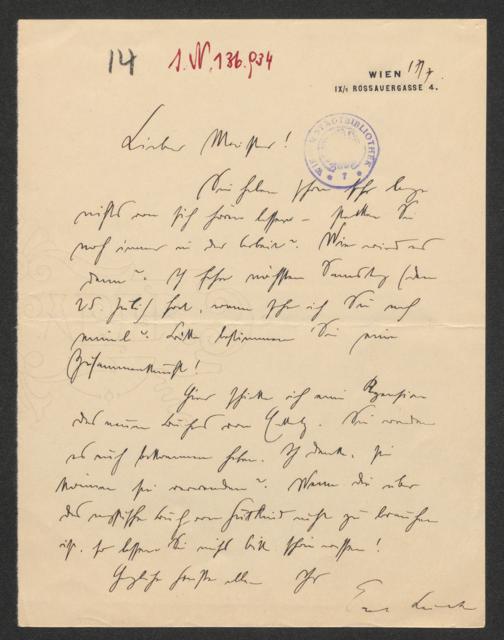 14
I.N.136.934
WIEN 17/7.
IX/1 ROSSAUERGASSE 4.
WIENER STADTBIBLIOTHEK
Lieber Meister!
Sie haben schon sehr lange
nichts von sich hören lassen – stecken Sie
noch immer in der Arbeit? Wie wird es
denn? Ich fahre nächsten Samstag (den
25. Juli) fort, wann sehe ich Sie noch
einmal? Bitte bestimmen Sie eine
Zusammenkunft!
Hier schicke ich eine Rezension
des neuen Buches von . Sie werden
es auch bekommen haben. Ich denke, Sie
können sie verwenden? Wenn die über
das russische Buch von nicht zu brauchen
ist, so lassen Sie mich's bitte schön wissen!
Herzliche Grüße allen Ihr